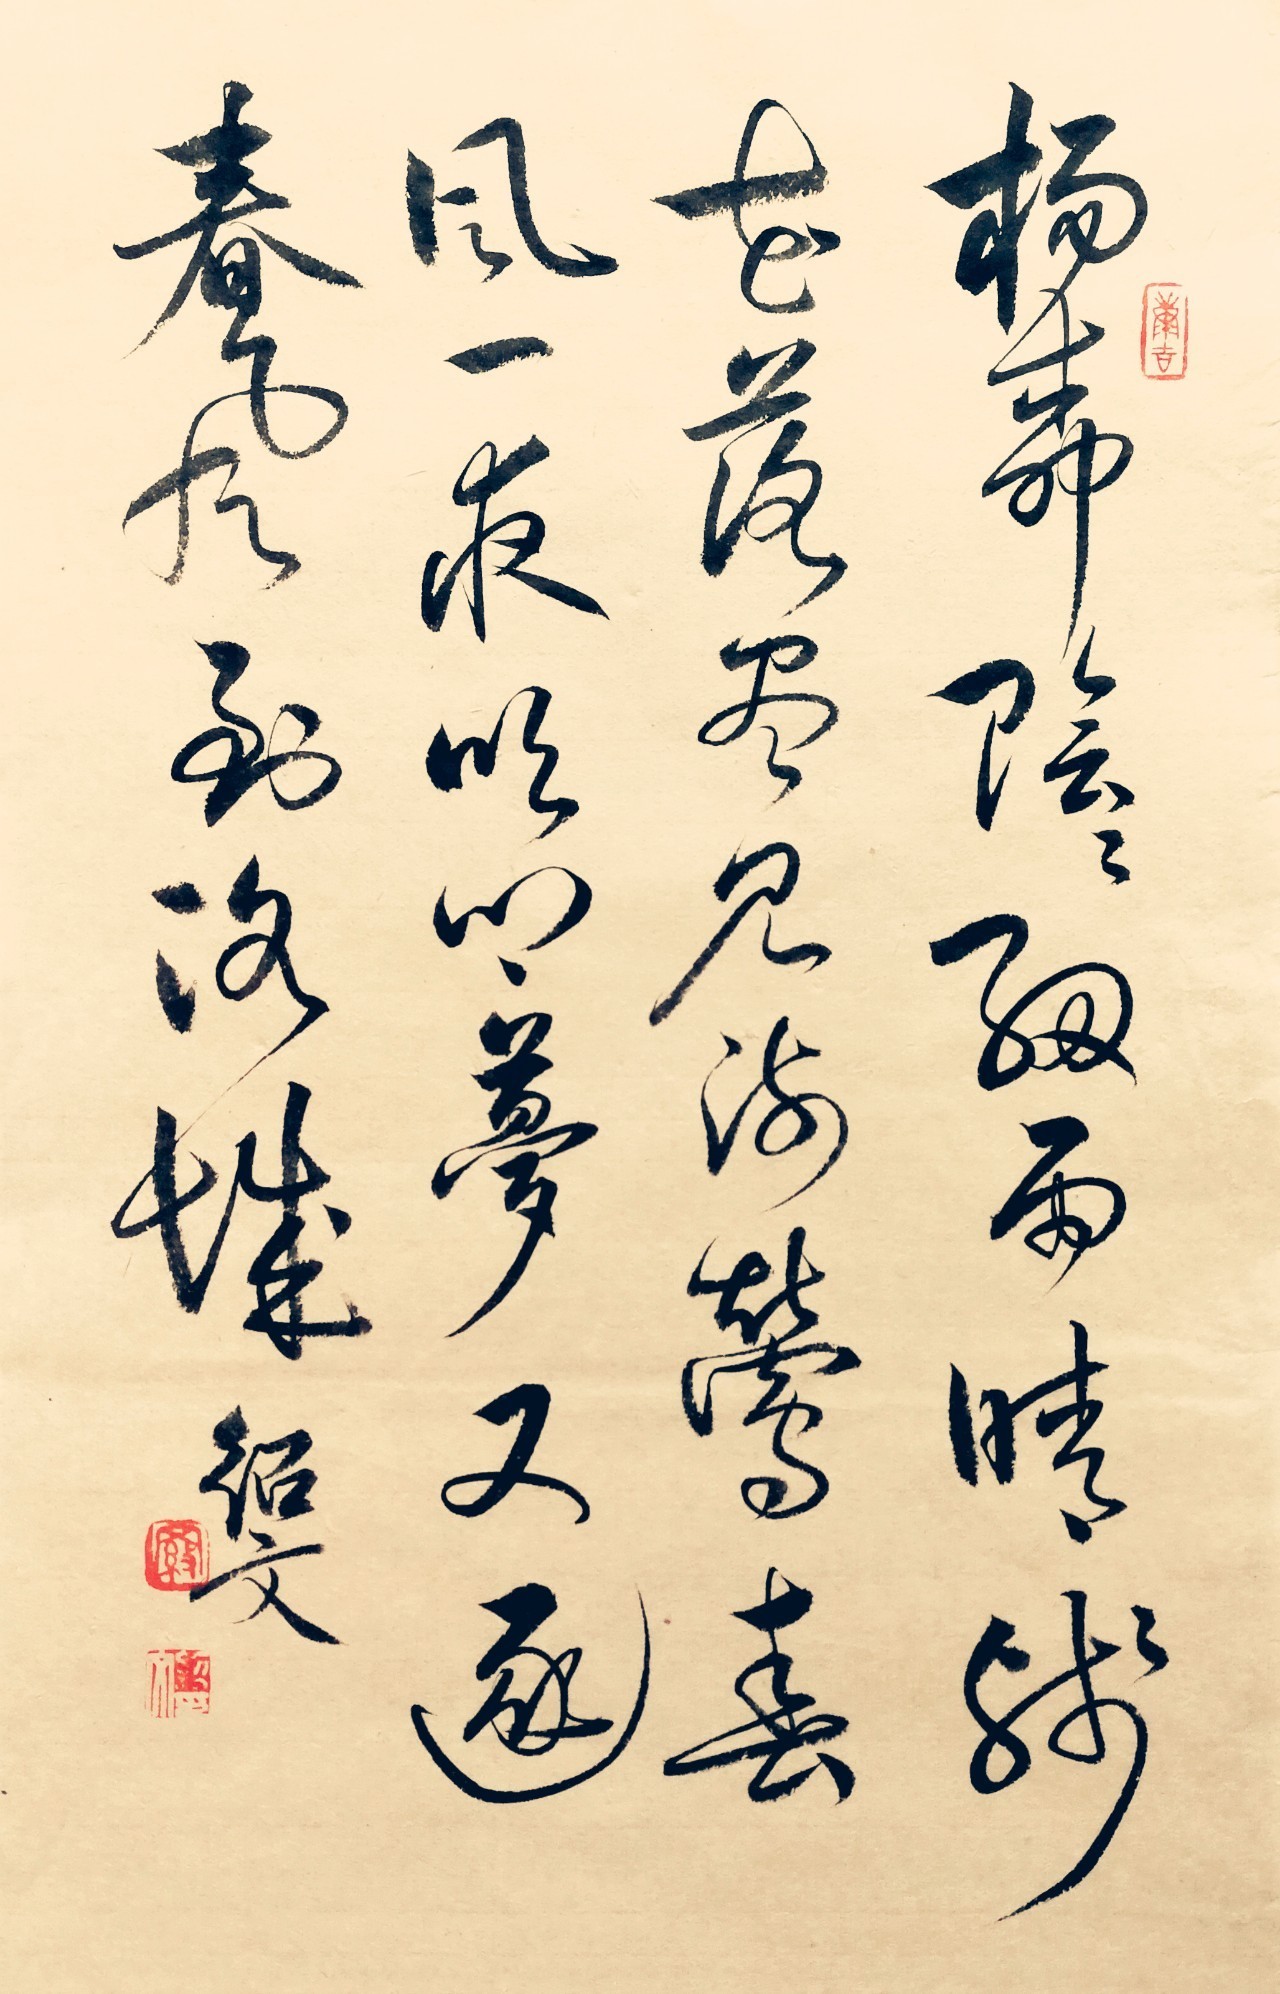 楊柳陰〻細雨晴殘
花落盡見流鶯春
風一夜吹鄉夢又逐
春風到洛城
紹文